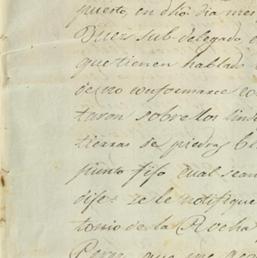 puesto, en dho dia mes
Juez sub-delegado
que tienen hablado
deseo conformarse co
taron sobre los lind
tierras de piedras bl
punto fijo cual sean
dijo: se le notifique
tonio de la Rocha
Perez, que me